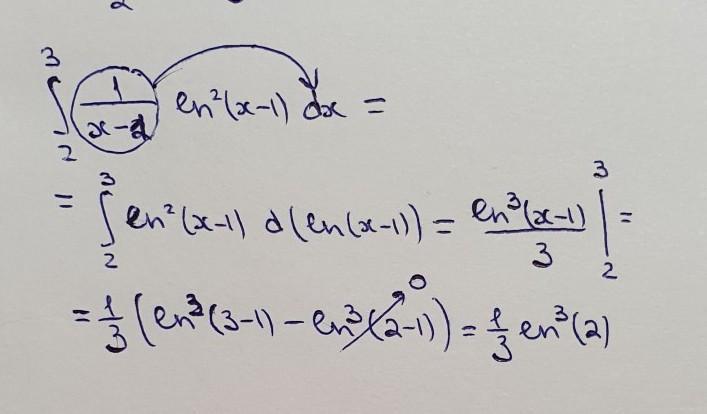 ∫₂³ 1/(x-1) ln²(x-1) dx =
= ∫₂³ ln²(x-1) d(ln(x-1)) = ln³(x-1)/3 |₂³ =
= 1/3 (ln³(3-1) - ln³(2-1)) = 1/3 ln³(2)
0